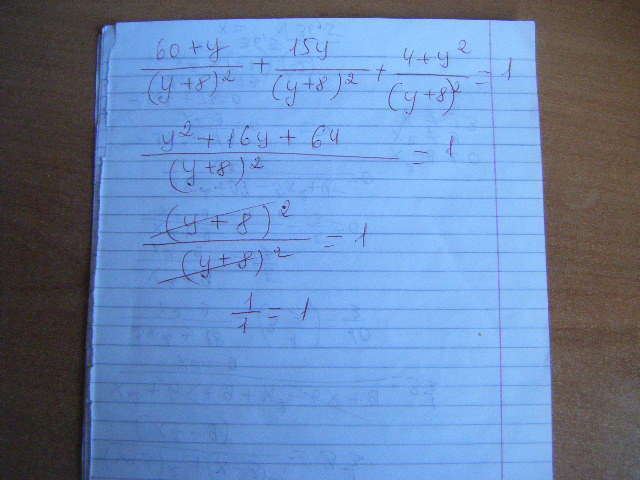 60+y/(y+8)² + 15y/(y+8)² + 4+y²/(y+8)² = 1
y²+16y+64/(y+8)² = 1
(y+8)²/(y+8)² = 1
1/1 = 1